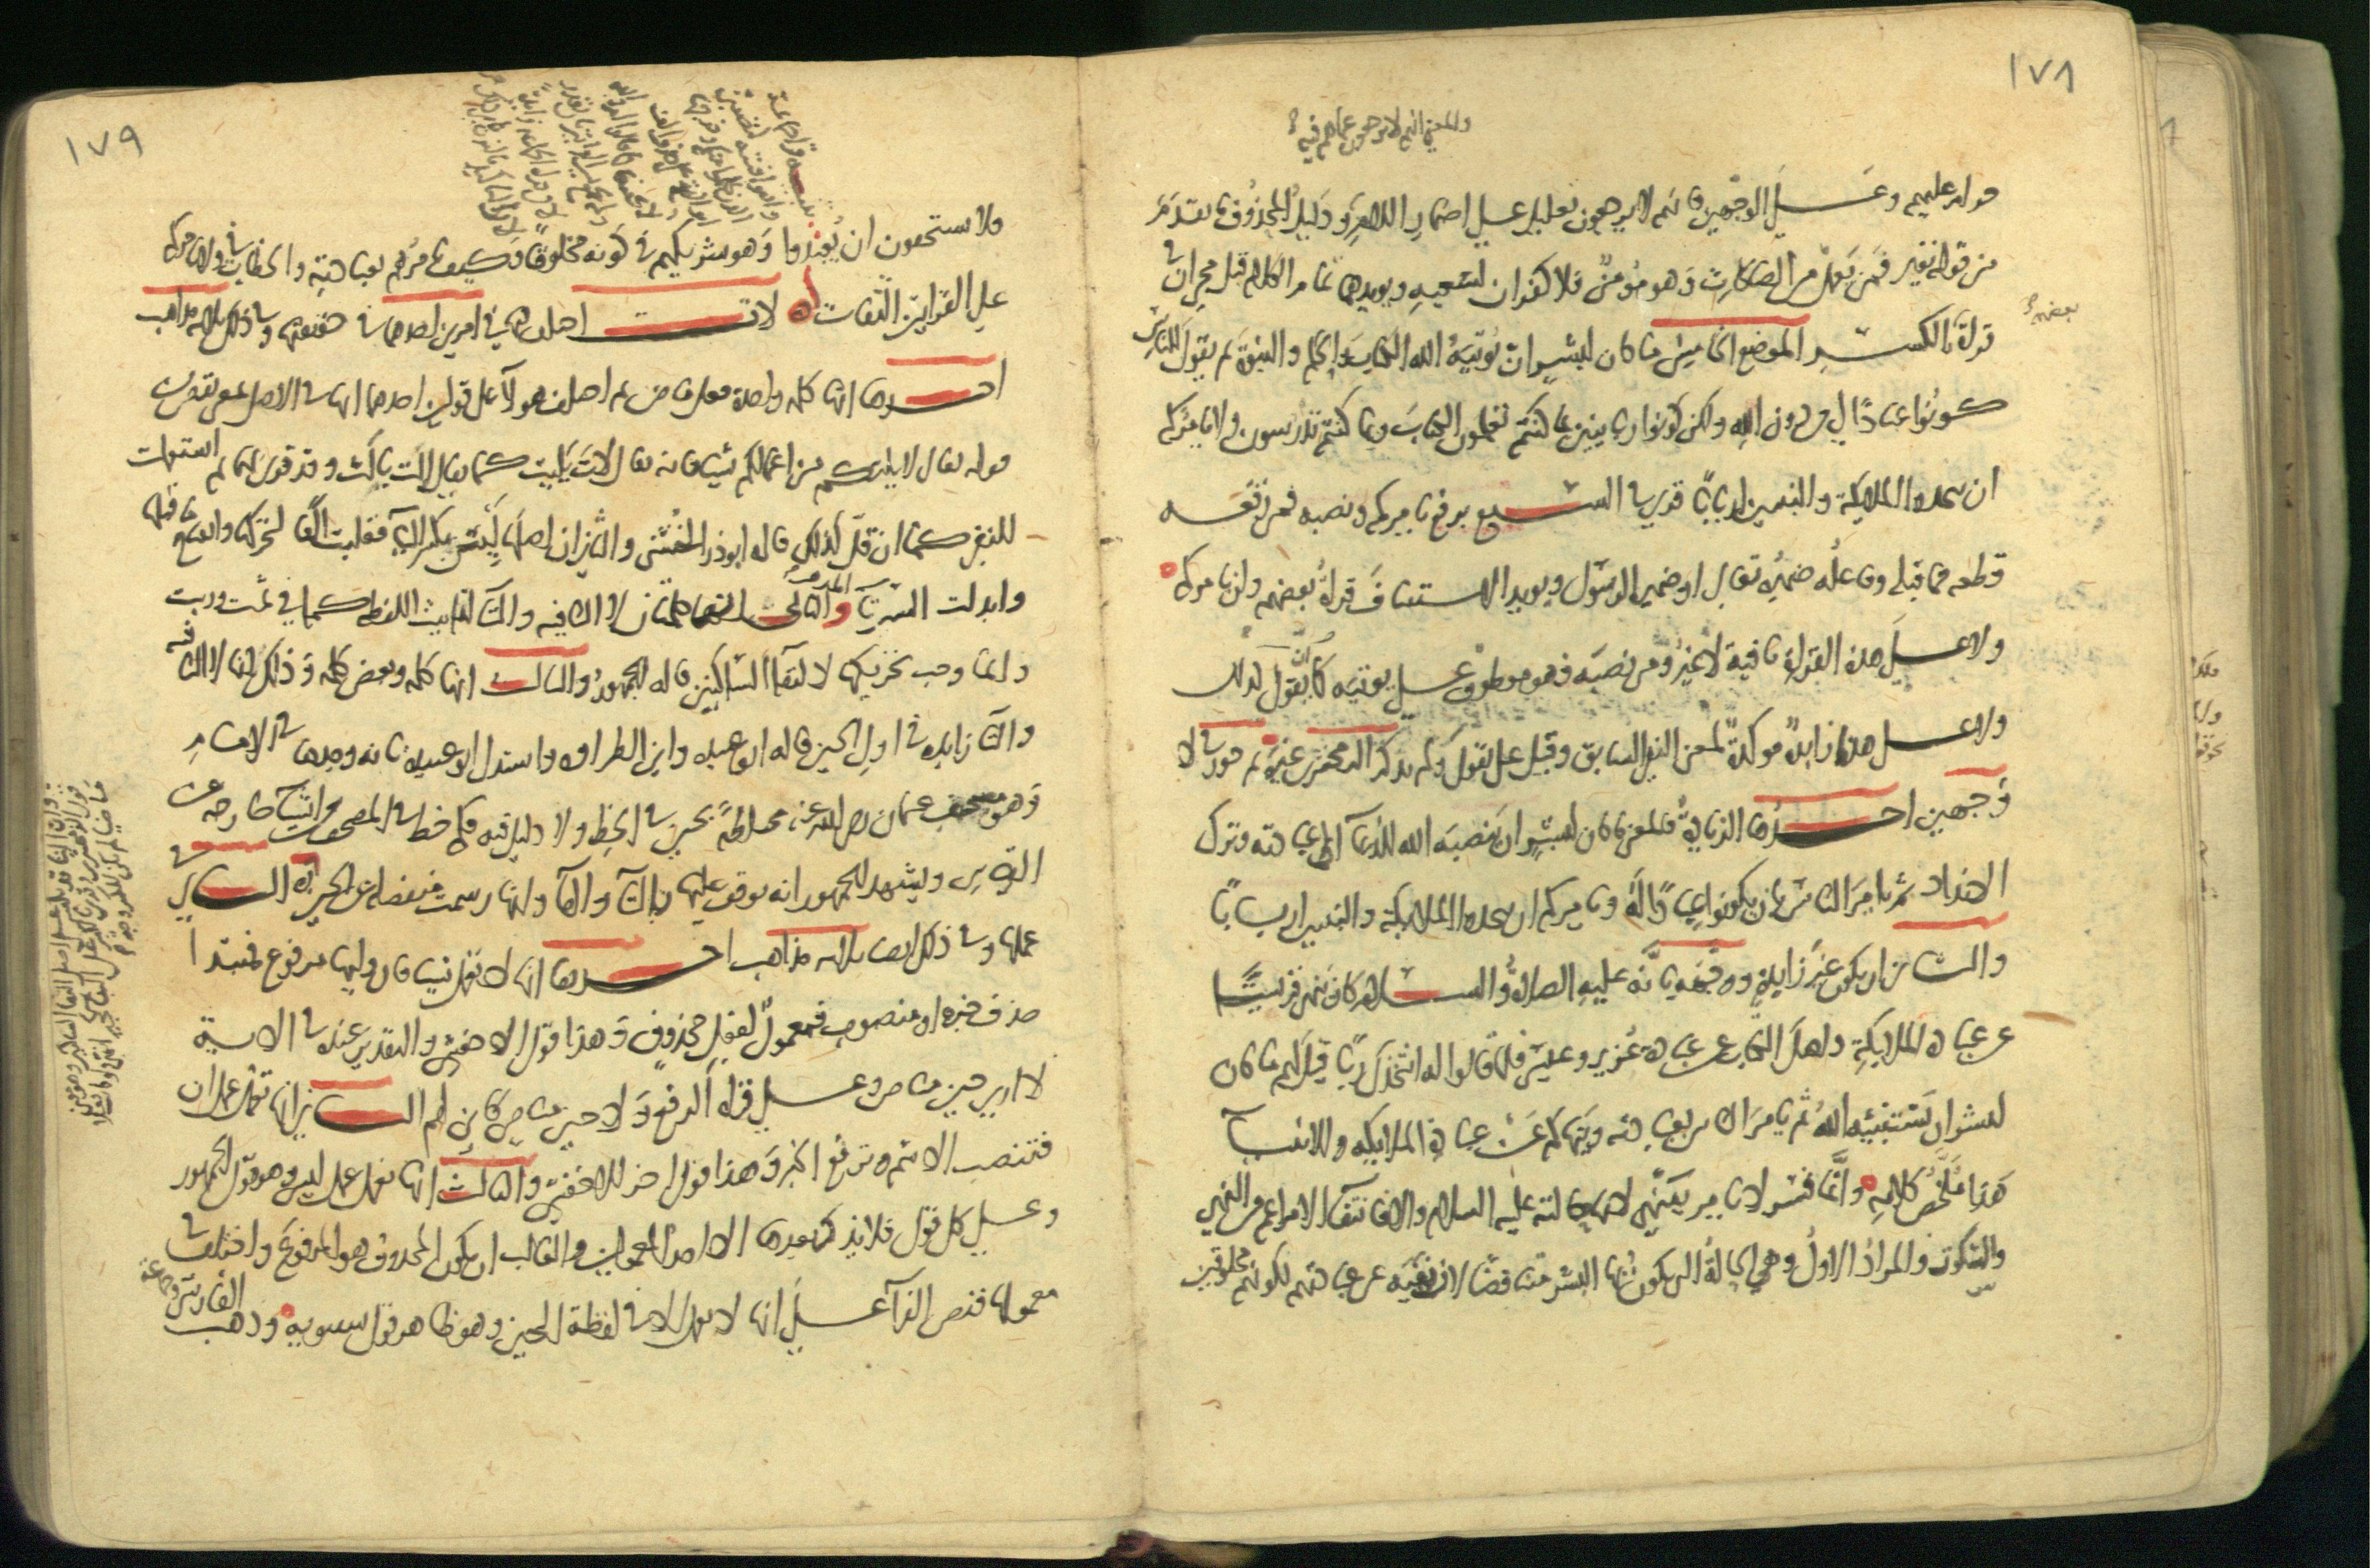 ١٧٨
والمعنى انهم لا يرجعون عما هم فيه
حرام عليهم وعلى الوجهين فانهم لا يرجعون تعليل على اضمار اللام ودليل المحذوف ما تقدم
من قوله تعالى فمن يعمل من الصالحات وهو مؤمن فلا كفران لسعيه ويويدهما تمام الكلام قبل مجي ان في
بعضهم
قراة بالكسر الموضع الخامس ما كان لبشر ان يوتيه الله الكتاب والحكم والنبوة ثم يقول للناس
كونوا عبادا لي من دون الله ولكن كونوا ربانيين بما كنتم تعلمون الكتاب وبما كنتم تدرسون ولا يامركم
ان تتخذوا الملايكة والنبيين اربابا قري في السبع برفع يامركم ونصبه فمن رفعه
قطعه عما قبله وفاعله ضميره تعالى او ضمير الرسول ويويد الاستيناف قراة بعضهم ولن يامركم
ولا على هذه القراة نافية لا غير ومن نصبه فهو معطوف على يوتيه كما ان يقول كذلك
ولا على هذا زايدة موكدة لمعنى النفي السابق وقيل على يقول ولم يذكر الزمخشري غيره ثم جوز في لا
وجهين احدهما الزيادة فالمعنى ما كان لبشر ان ينصبه الله للدعا الى عبادته وترك
الانداد ثم يامر الناس بان يكونوا عبادا له ويامركم ان تتخذوا الملايكة والنبيين اربابا
والثاني ان يكون غير زايدة ووجهه بانه عليه الصلاة والسلام كان ينهى قريشا
عن عبادة الملايكة واهل الكتاب عن عبادة عزير وعيسى فلما قالوا له انتخذك ربا قيل لهم ما كان
لبشر ان يستنبئه الله ثم يامر الناس بعبادته وينهاكم عن عبادة الملايكة والانبيا
هذا ملخص كلامه وانما فسر لا يامر بينهى لانها حالته عليه السلام والا فانتفا الامر اعم من النهي
والسكوت والمراد الاول وهي الحالة التي يكون بها البشر متناقضا لان نهيه عن عبادتهم لكونهم مخلوقين
١٧٩
فلا يستحقون ان يعبدوا وهو شريكهم في كونه مخلوقا فكيف يامرهم بعبادته والخطاب في ولا يامركم
على القراتين التفات لات اختلف فيها في امرين احدهما في حقيقتها وفي ذلك ثلاثة مذاهب
احدها انها كلمة واحدة فعل ماض ثم اختلف هولا على قولين احدهما انها في الاصل بمعنى نقص من
قوله تعالى لا يلتكم من اعمالكم شيا فانه يقال لات يليت كما يقال الت يالت وقد قري بهما ثم استعملت
للنفي كما ان قل كذلك قاله ابو ذر الخشني والثاني ان اصلها ليس بكسر اليا فقلبت الفا لتحركها وانفتاح ما قبلها
وابدلت السين تا والمذهب الثاني انها كلمتان لا النافية والتا لتانيث اللفظة كما في ثمت وربت
وانما وجب تحريكها لالتقا الساكنين قاله الجمهور والثالث انها كلمة وبعض كلمة وذلك انها لا النافية
والتا زايدة في اول الحين قاله ابو عبيدة وابن الطراوة واستدل ابو عبيدة بانه وجدها في الامام
وهو مصحف عثمان رضي الله عنه مختلطة بحين في الخط ولا دليل فيه فكم في خط المصحف من اشيا خارجة عن
القياس ويشهد للجمهور انه يوقف عليها بالتا والها وانها رسمت منفصلة عن الحين الثاني في
عملها وفي ذلك ايضا ثلاثة مذاهب احدها انها لا تعمل شيا فان وليها مرفوع فمبتدا
حذف خبره او منصوب فمعمول لفعل محذوف وهذا قول الاخفش والتقدير عنده في الاية
لا ارى حين مناص وعلى قراة الرفع ولا حين مناص كاين لهم الثاني انها تعمل عمل ان
فتنصب الاسم وترفع الخبر وهذا قول اخر للاخفش والثالث انها تعمل عمل ليس وهو قول الجمهور
وعلى كل قول فلا يذكر بعدها الا احد المعمولين والغالب ان يكون المحذوف هو المرفوع واختلف في
معمولها فنص الفرا على انها لا تعمل الا في لفظة الحين وهو ظاهر قول سيبويه وذهب
الفارسي وجماعة